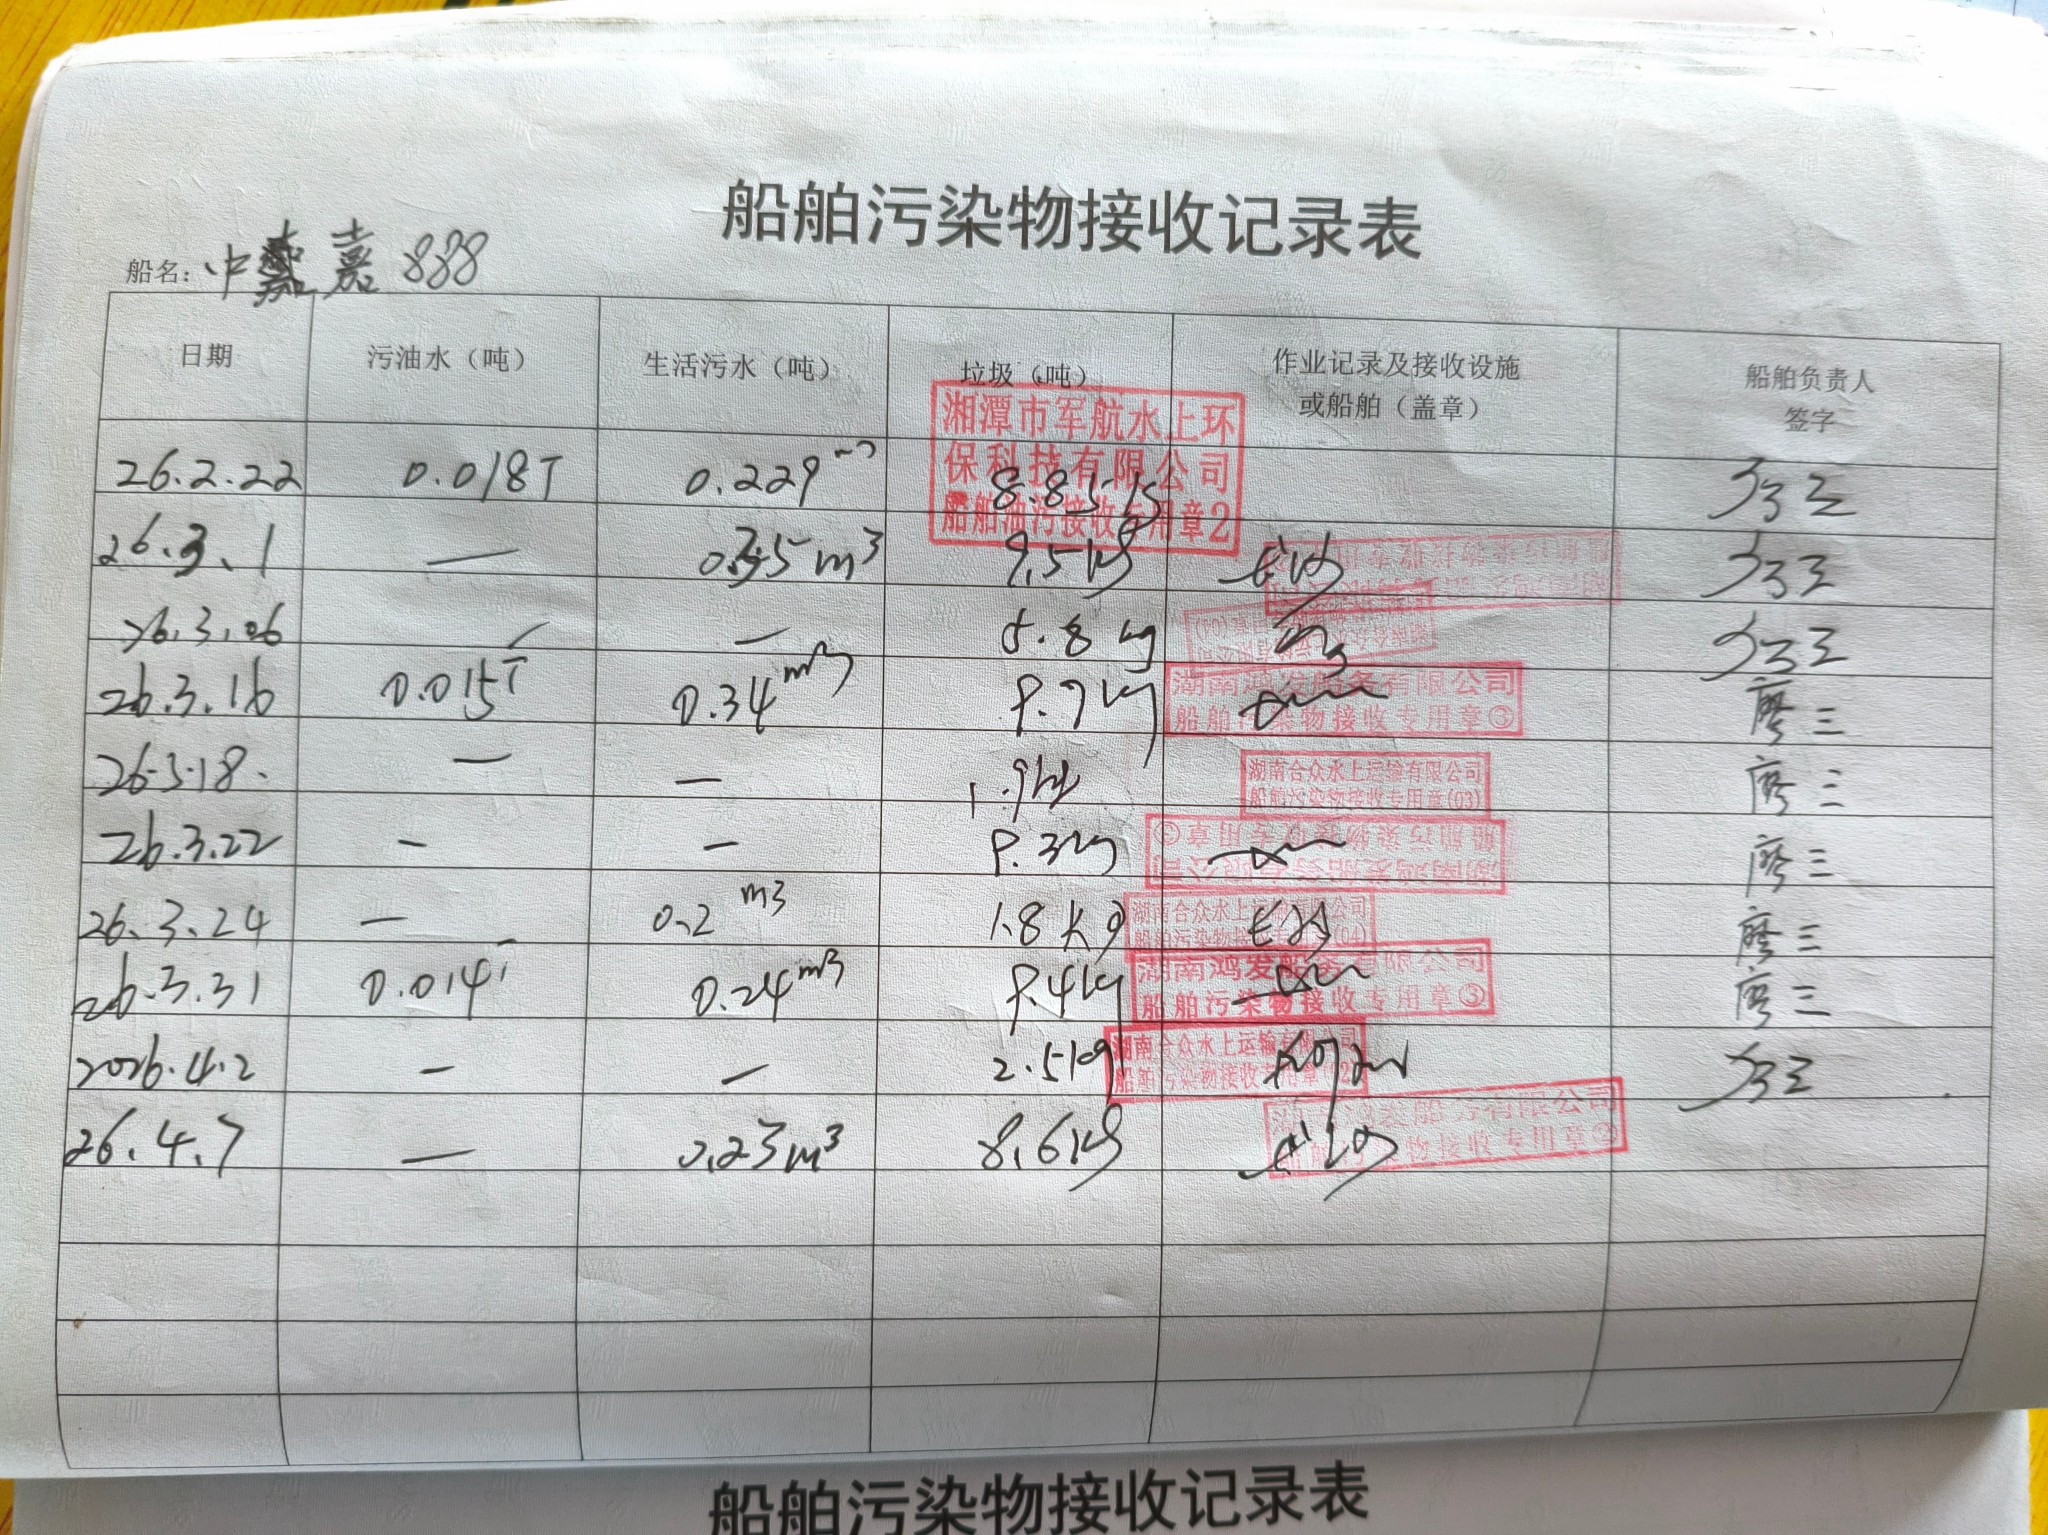 船舶污染物接收记录表
船名: 中嘉 888
日期 污油水（吨） 生活污水（吨） 垃圾（吨） 作业记录及接收设施或船舶（盖章） 船舶负责人签字
湘潭市军航水上环
保科技有限公司
船舶油污接收专用章2
26.2.22 0.018T 0.229
26.3.1 — m³ 9.5kg
26.3.06 — 5.8kg
26.3.16 0.015T 0.34m³ 9.7kg 廖三
湖南鸿发服务有限公司
船舶污染物接收专用章③
26.3.18. — — 1.9kg 廖三
湖南合众水上运输有限公司
船舶污染物接收专用章(03)
26.3.22 — — 9.3kg 廖三
26.3.24 — 0.2m3 1.8kg 廖三
湖南合众水上运输有限公司
船舶污染物接收专用章(04)
26.3.31 0.014T 0.24m3 9.4kg 廖三
湖南鸿发服务有限公司
船舶污染物接收专用章③
2026.4.2 — — 2.5kg
湖南合众水上运输有限公司
船舶污染物接收专用章
26.4.7 — 0.23m³ 8.6kg
船舶污染物接收专用章②
船舶污染物接收记录表